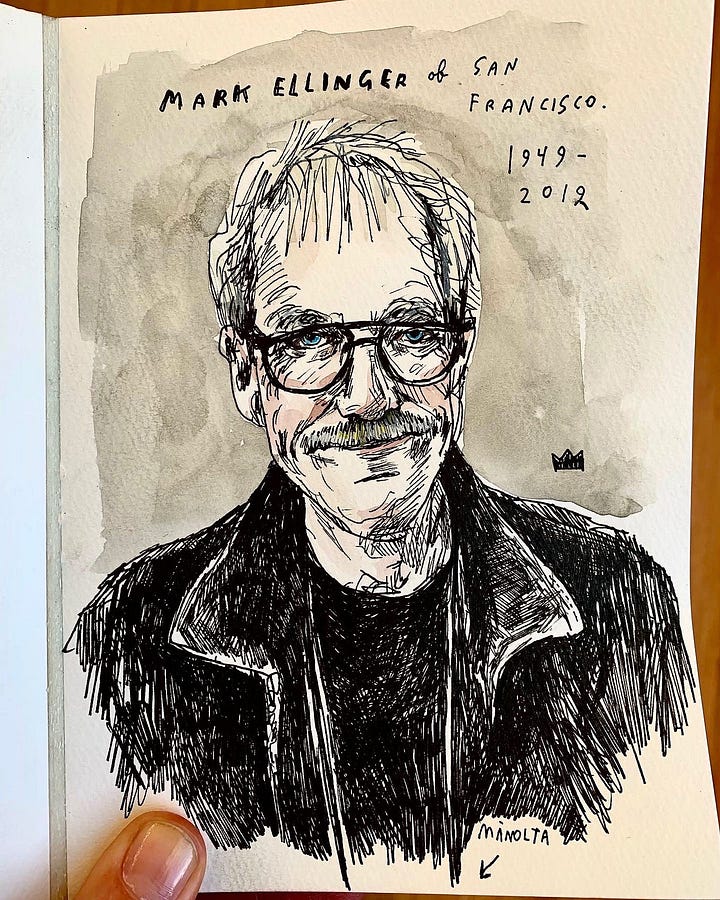 MARK ELLINGER of SAN
FRANCISCO.
1949-
2012
MINOLTA